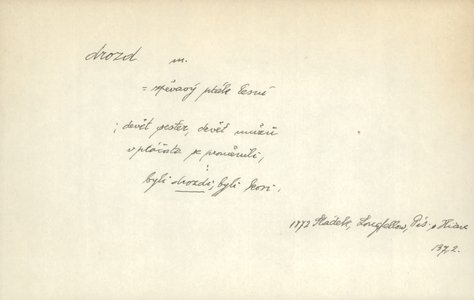 drozd m.
= zpěvavý pták lesní
; devět sester, devět mužů
v ptáčata se proměnili,
:
byli drozdi, byli kosi,
1872 Sládek, Longfellow, Pís. o Hiaw.
137,2.